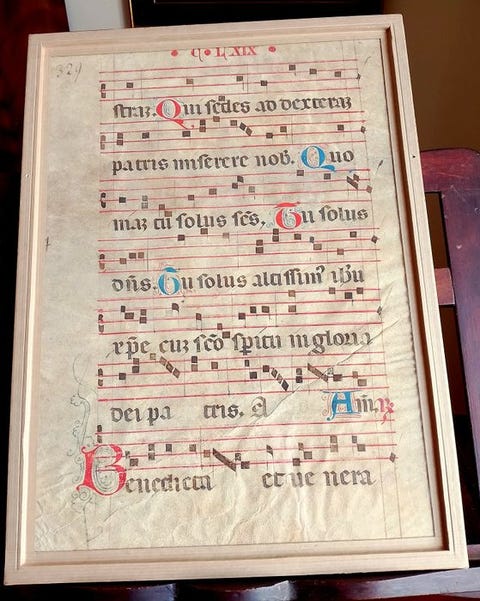 C·LXIX
329
straz. Qui sedes ad dexteraz
patris miserere nob. Quo
niaz tu solus scs. Tu solus
dns. Tu solus altissim9 ihu
xpe cuz sco spiritu in gloria
dei pa tris. A Amen
Benedicta et ve nera